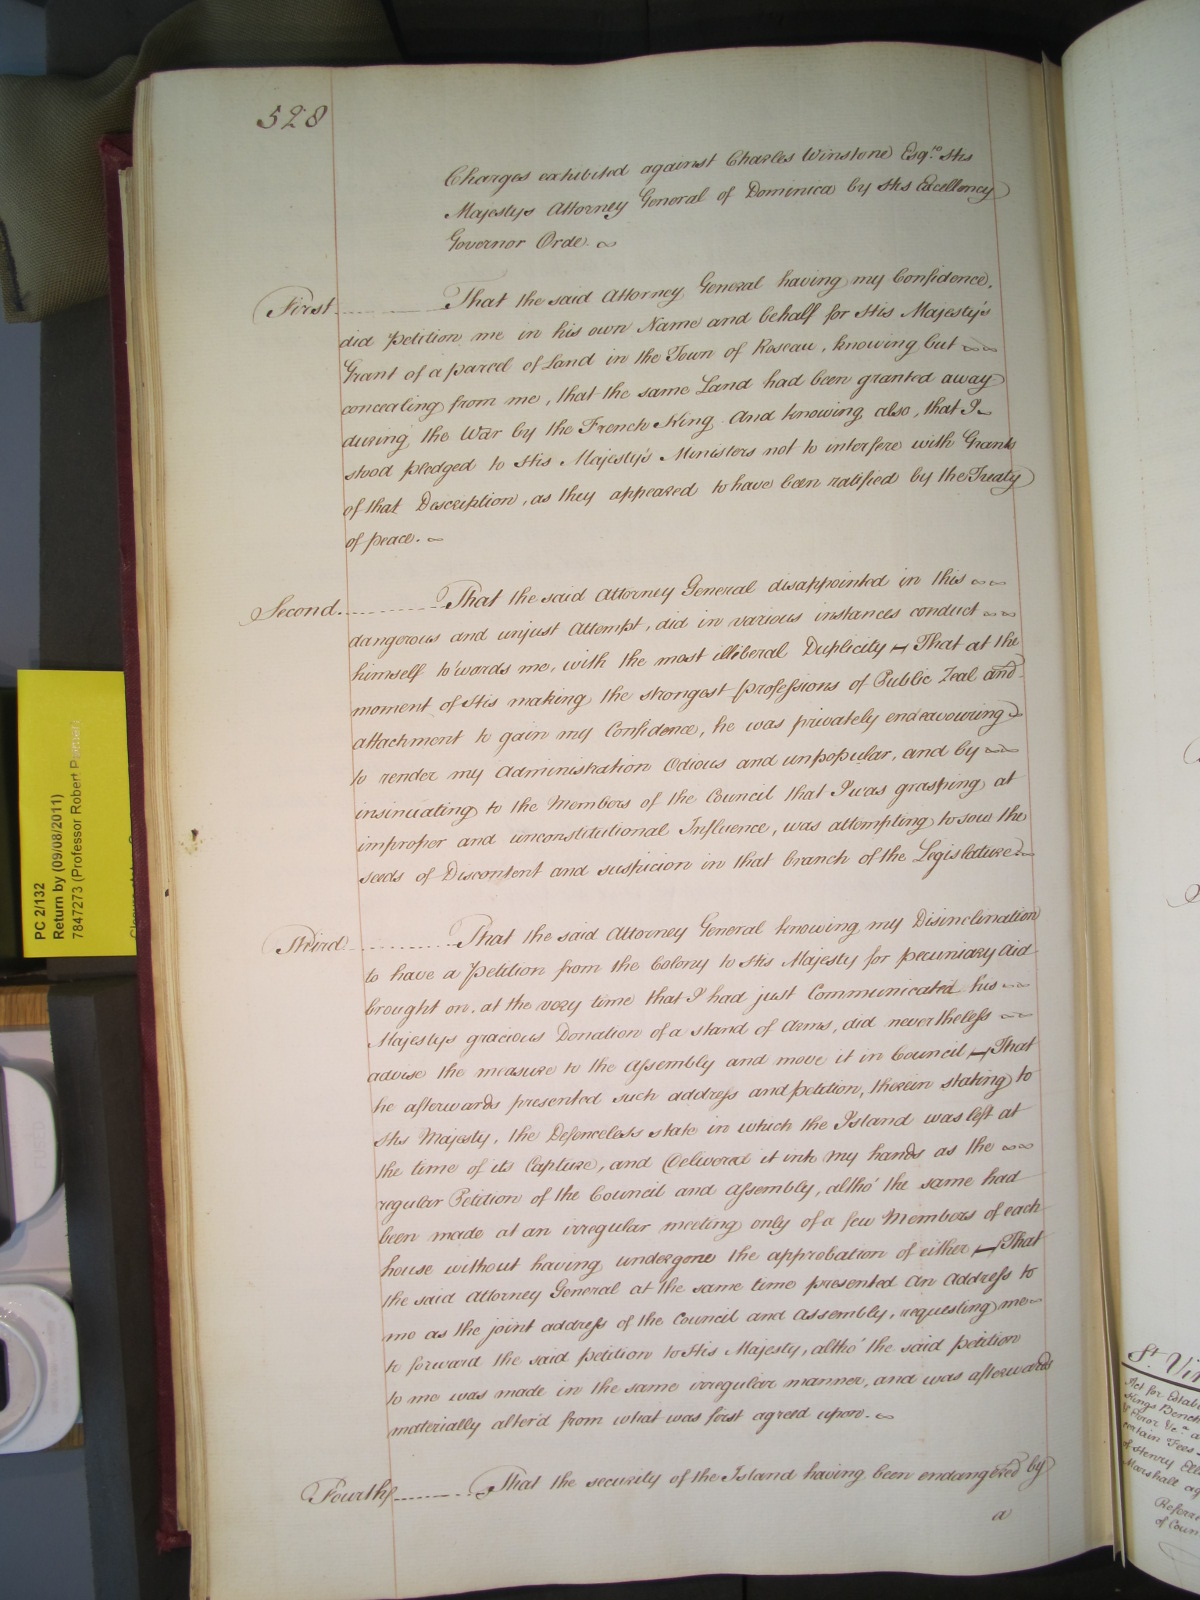 528
Charges exhibited against Charles Winstone Esqre. His
Majestys Attorney General of Dominica by His Excellency
Governor Orde.
First That the said Attorney General having my Confidence,
did petition me in his own Name and behalf for His Majesty's
Grant of a parcel of Land in the Town of Roseau, knowing but
concealing from me, that the same Land had been granted away
during the War by the French King And knowing also, that I
stood pledged to His Majesty's Ministers not to interfere with Grants
of that Description, as they appeared to have been ratified by the Treaty
of peace.
Second. That the said Attorney General disappointed in this
dangerous and unjust Attempt, did in various instances conduct
himself towards me, with the most illiberal Duplicity — That at the
moment of His making the strongest professions of Public Zeal and
attachment to gain my Confidence, he was privately endeavouring
to render my Administration Odious and unpopular, and by
insinuating to the Members of the Council that I was grasping at
improper and unconstitutional Influence, was attempting to sow the
seeds of Discontent and suspicion in that branch of the Legislature.
Third That the said Attorney General knowing my Disinclination
to have a Petition from the Colony to His Majesty for pecuniary Aid
brought on, at the very time that I had just Communicated his
Majestys gracious Donation of a stand of Arms, did nevertheless
advise the measure to the Assembly and move it in Council — That
he afterwards presented such address and petition, therein stating to
His Majesty, the Defenceless state in which the Island was left at
the time of its Capture, and Delivered it into my hands as the
regular Petition of the Council and Assembly, altho' the same had
been made at an irregular meeting only of a few Members of each
house without having undergone the approbation of either — That
the said Attorney General at the same time presented An Address to
me as the joint address of the Council and Assembly, requesting me
to forward the said petition to His Majesty, altho' the said petition
to me was made in the same irregular manner, and was afterwards
materially alter'd from what was first agreed upon.
Fourthly That the security of the Island having been endangered by
a
PC 2/132
Return by (09/08/2011)
7847273 (Professor Robert
St. Vin
Act for Establ
Kings Bench
certain Fees
of Henry
Marshall
Referre
of Coun